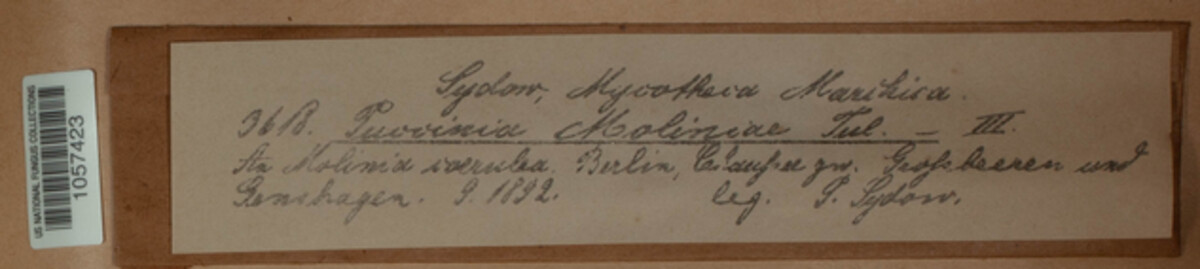 US NATIONAL FUNGUS COLLECTIONS
1057423
Sydow, Mycotheca Marchica.
3618. Puccinia Moliniae Tul. — III.
An Molinia coerulea. Berlin, Chaussee zw. Grossbeeren und
Genshagen. 9. 1892. leg. P. Sydow.